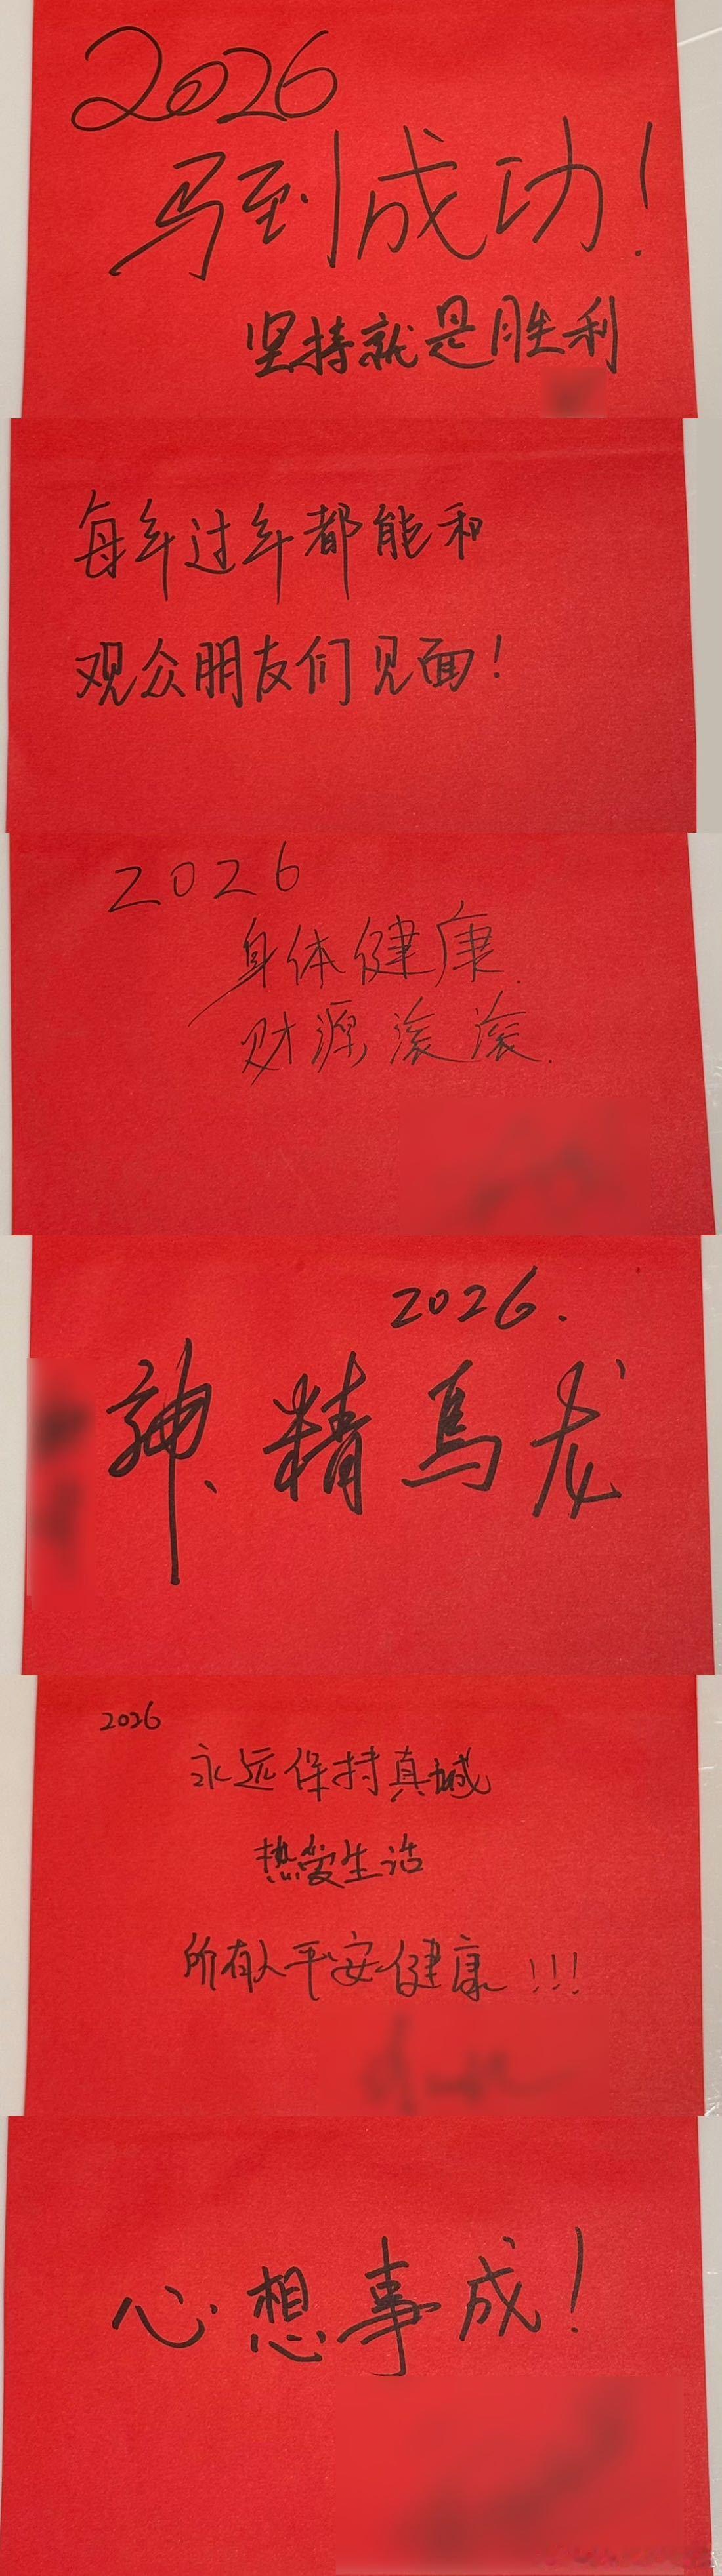 2026
马到成功!
坚持就是胜利
每年过年都能和
观众朋友们见面!
2026
身体健康.
财源滚滚.
2026.
神精馬龙
2026
永远保持真城
热爱生活
所有人平安健康!!!
心想事成!